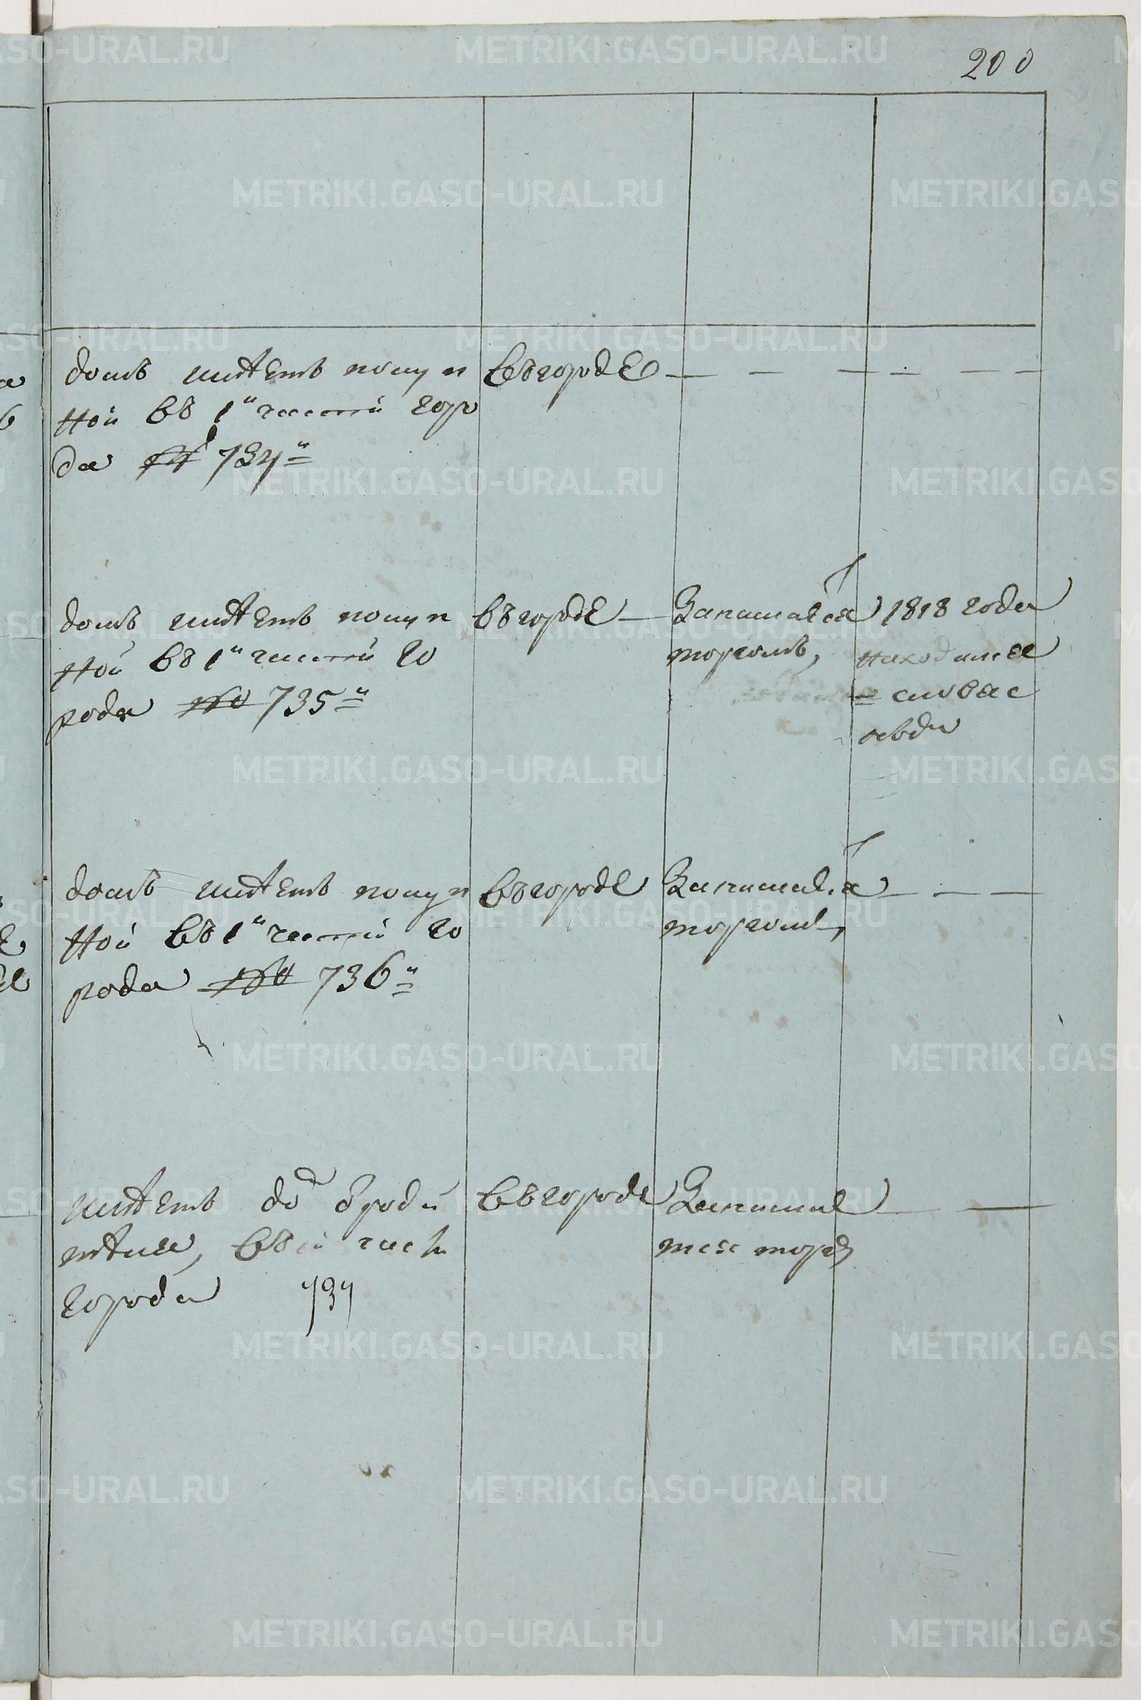 200
домъ имѣетъ покуп
ной въ 1й части горо
да № 734й
въ городе
домъ имѣетъ покуп
ной въ 1й части го
рода № 735й
въ городе
Занимается
торгомъ,
1818 года
находился
домъ имѣетъ покуп
ной въ 1й части го
рода № 736й
въ городе
Занимается
торгомъ,
имѣетъ домъ
въ части
города 737
въ городе
Занимае
тся торго
METRIKI.GASO-URAL.RU